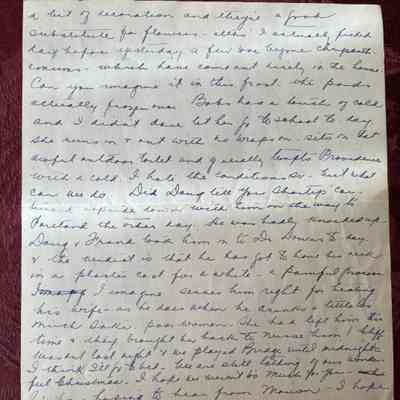 a bit of decoration and they're a good
substitute for flowers - also I actually picked
day before yesterday a few
which have come out nicely in the house.
Can you imagine it in this frost. The ponds
actually frozen over. Bobs has a touch of cold
and I didn't dare let her go to school to day
she runs in & out with no wraps on - sits in that
awful outdoor toilet and generally tempts Providence
with a cold. I hate the conditions so - but what
can we do. Did Doug tell you Shorty's car
turned upside down with him on the way to
the other day. He was badly knocked up
Doug & Frank took him in to Dr to day
& the verdict is that he has got to have his neck
in a plaster cast for a while - a painful process
I imagine serves him right for beating
his wife - as he does when he drinks a little too
much Sake. poor woman. She had left him this
time & they brought her back to nurse him! Cliff
was out last night & we played Bridge until midnight
I think I'll go to bed. We are still talking of our wonder-
ful Christmas. I hope we weren't too much for you -
to hear from I hope